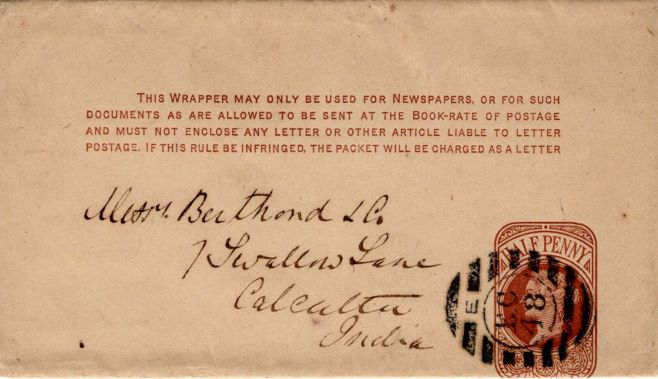 THIS WRAPPER MAY ONLY BE USED FOR NEWSPAPERS, OR FOR SUCH
DOCUMENTS AS ARE ALLOWED TO BE SENT AT THE BOOK-RATE OF POSTAGE
AND MUST NOT ENCLOSE ANY LETTER OR OTHER ARTICLE LIABLE TO LETTER
POSTAGE. IF THIS RULE BE INFRINGED, THE PACKET WILL BE CHARGED AS A LETTER
Messrs. Berthond & Co.
7 Swallow Lane
Calcutta
India
HALF PENNY
E